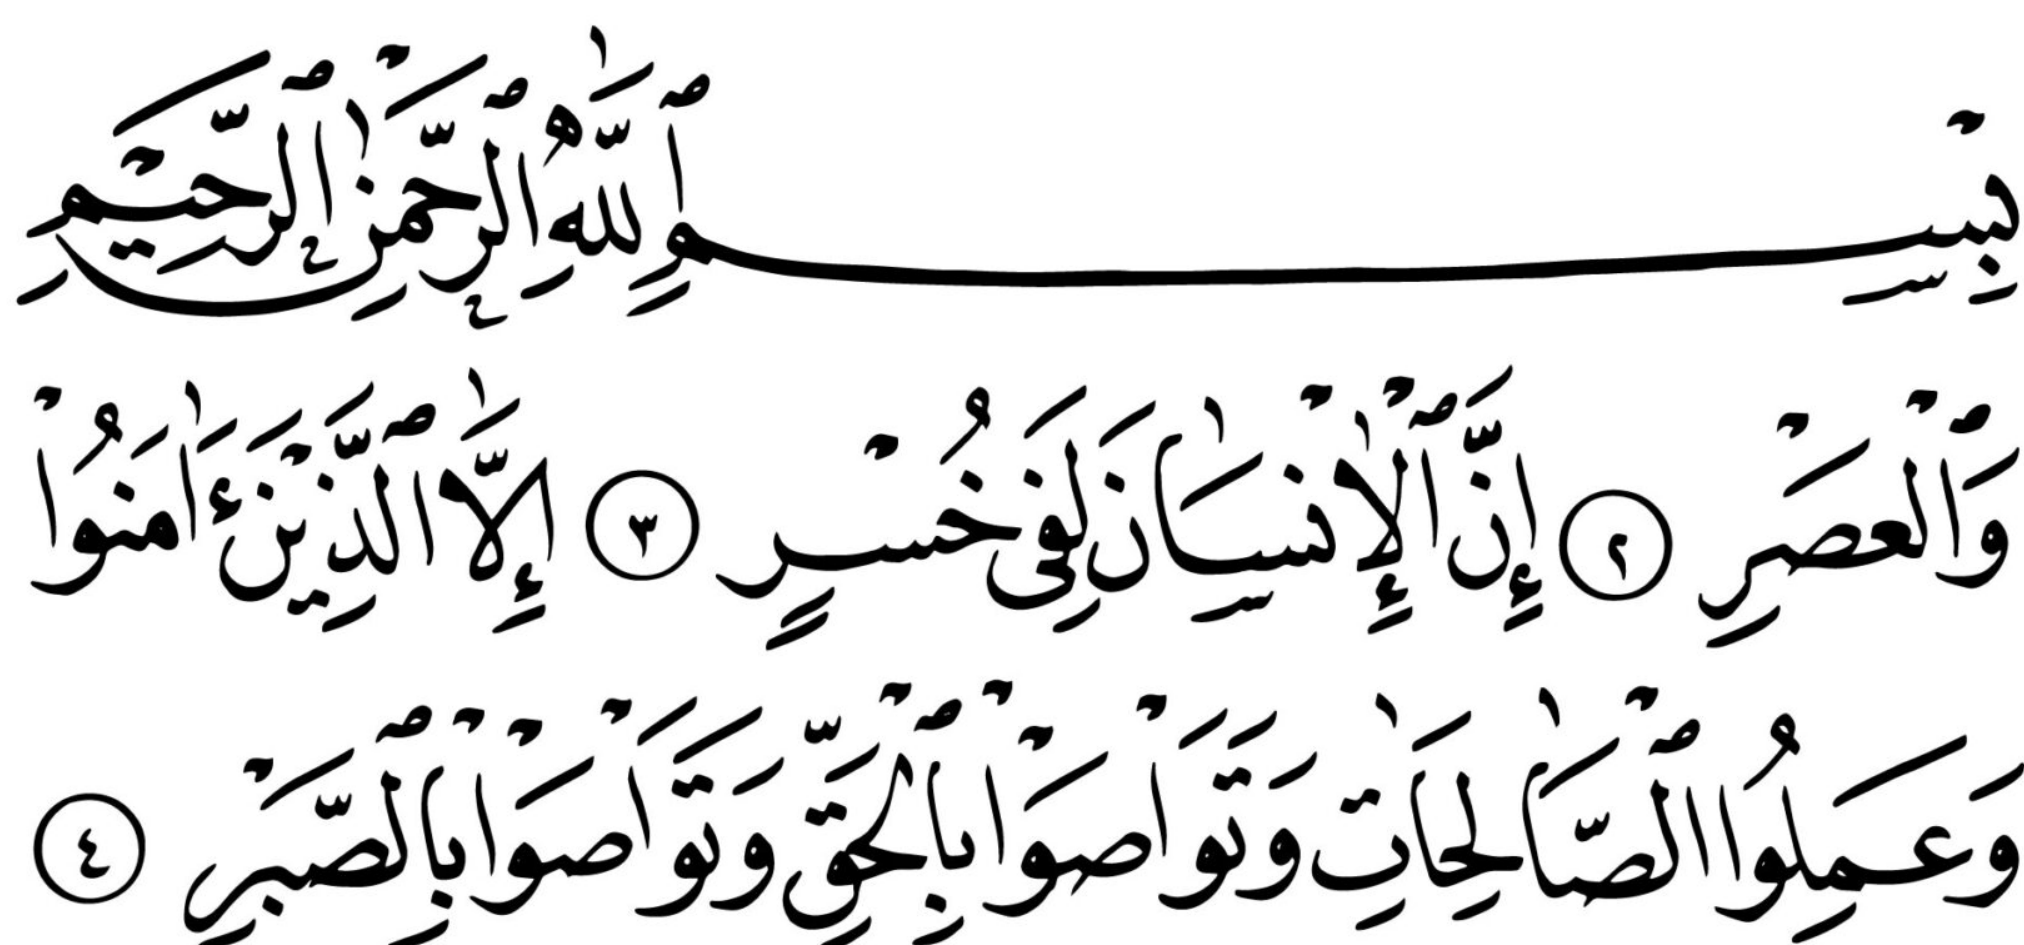 بِسْمِ ٱللَّهِ ٱلرَّحْمَٰنِ ٱلرَّحِيْمِ
وَٱلْعَصْرِ ٢ إِنَّ ٱلْإِنْسَانَ لَفِى خُسْرٍ ٣ إِلَّا ٱلَّذِيْنَ ءَامَنُوْا
وَعَمِلُوْا ٱلصَّالِحَاتِ وَتَوَاصَوْا بِٱلْحَقِّ وَتَوَاصَوْا بِٱلصَّبْرِ ٤